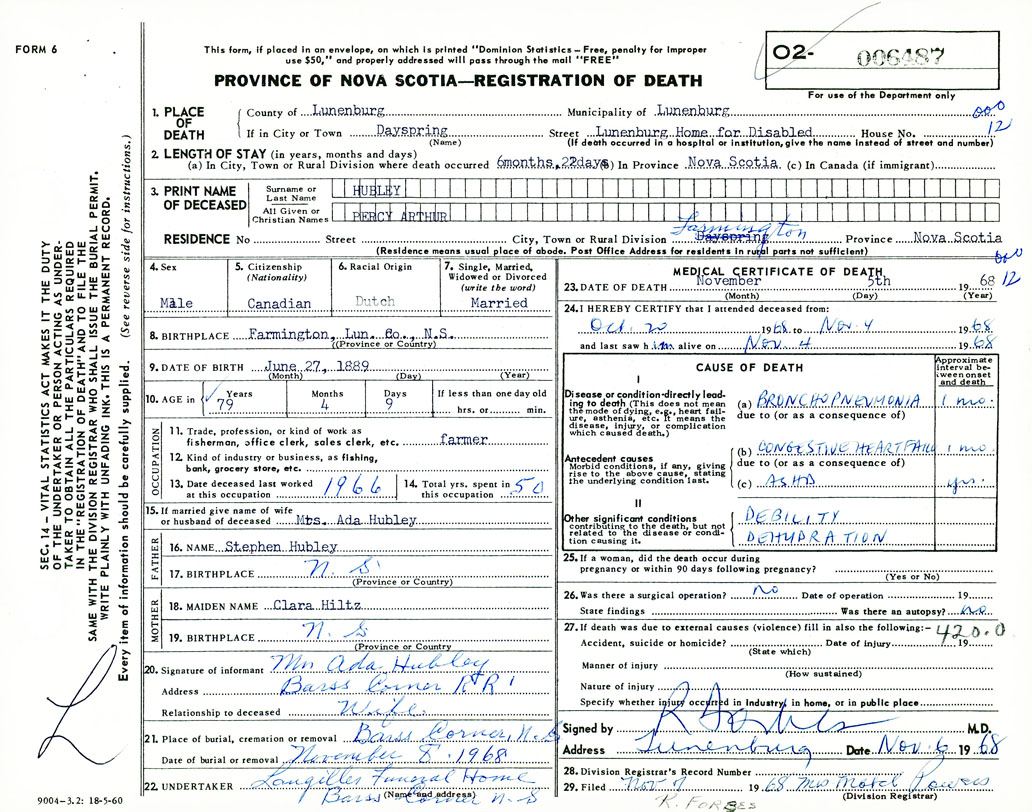 FORM 6
This form, if placed in an envelope, on which is printed "Dominion Statistics – Free, penalty for improper
use $50," and properly addressed will pass through the mail "FREE"
PROVINCE OF NOVA SCOTIA—REGISTRATION OF DEATH
O2- 006487
For use of the Department only
SEC. 14 – VITAL STATISTICS ACT MAKES IT THE DUTY
OF THE UNDERTAKER OR PERSON ACTING AS UNDER-
TAKER TO OBTAIN ALL THE PARTICULARS REQUIRED
IN THE "REGISTRATION OF DEATH" AND TO FILE THE
SAME WITH THE DIVISION REGISTRAR WHO SHALL ISSUE THE BURIAL PERMIT.
WRITE PLAINLY WITH UNFADING INK. THIS IS A PERMANENT RECORD.
Every item of information should be carefully supplied. (See reverse side for instructions.)
1. PLACE OF DEATH
County of Lunenburg Municipality of Lunenburg 000
If in City or Town Dayspring Street Lunenburg Home for Disabled House No. 12
(Name) (If death occurred in a hospital or institution, give the name instead of street and number)
2. LENGTH OF STAY (in years, months and days)
(a) In City, Town or Rural Division where death occurred 6months,22days (b) In Province Nova Scotia (c) In Canada (if immigrant)
3. PRINT NAME OF DECEASED
Surname or Last Name HUBLEY
All Given or Christian Names PERCY ARTHUR
Farmington
RESIDENCE No Street City, Town or Rural Division Dayspring Province Nova Scotia
(Residence means usual place of abode. Post Office Address for residents in rural parts not sufficient)
000
12
4. Sex
Male
5. Citizenship
(Nationality)
Canadian
6. Racial Origin
Dutch
7. Single, Married,
Widowed or Divorced
(write the word)
Married
8. BIRTHPLACE Farmington, Lun. Co., N.S.
(Province or Country)
9. DATE OF BIRTH June 27, 1889
(Month) (Day) (Year)
10. AGE in
Years 79
Months 4
Days 9
If less than one day old
hrs. or min.
OCCUPATION
11. Trade, profession, or kind of work as
fisherman, office clerk, sales clerk, etc. farmer
12. Kind of industry or business, as fishing,
bank, grocery store, etc.
13. Date deceased last worked
at this occupation 1966
14. Total yrs. spent in
this occupation 50
15. If married give name of wife
or husband of deceased Mrs. Ada Hubley
FATHER
16. NAME Stephen Hubley
17. BIRTHPLACE N.S.
(Province or Country)
MOTHER
18. MAIDEN NAME Clara Hiltz
19. BIRTHPLACE N.S
(Province or Country
20. Signature of informant Mrs Ada Hubley
Address Barss Corner R R 1
Relationship to deceased Wife
21. Place of burial, cremation or removal Barss Corner, N.S
Date of burial or removal November 8, 1968
22. UNDERTAKER Langilles Funeral Home
(Name and address)
Barss Corner N-S
9004–3.2: 18-5-60
MEDICAL CERTIFICATE OF DEATH
23. DATE OF DEATH November 5th 1968
(Month) (Day) (Year)
24. I HEREBY CERTIFY that I attended deceased from:
Oct. 20 1968 to Nov. 4 1968
and last saw him alive on Nov. 4 1968
CAUSE OF DEATH
Approximate
interval be-
tween onset
and death
I
Disease or condition directly lead-
ing to death (This does not mean
the mode of dying, e.g., heart fail-
ure, asthenia, etc. It means the
disease, injury, or complication
which caused death.)
(a) BRONCHOPNEUMONIA 1 mo.
due to (or as a consequence of)
Antecedent causes
Morbid conditions, if any, giving
rise to the above cause, stating
the underlying condition last.
(b) CONGESTIVE HEART FAILU 1 mo.
due to (or as a consequence of)
(c) ASHD yrs.
II
Other significant conditions
contributing to the death, but not
related to the disease or condi-
tion causing it.
DEBILITY
DEHYDRATION
25. If a woman, did the death occur during
pregnancy or within 90 days following pregnancy?
(Yes or No)
26. Was there a surgical operation? no Date of operation 19
State findings Was there an autopsy? no
27. If death was due to external causes (violence) fill in also the following:– 420.0
Accident, suicide or homicide? Date of injury 19
(State which)
Manner of injury
(How sustained)
Nature of injury
Specify whether injury occurred in Industry, in home, or in public place
Signed by R Forbes M.D.
Address Lunenburg Date Nov. 6 1968
28. Division Registrar's Record Number
29. Filed Nov 1968 Mrs Powers
(Division Registrar)
R. FORBES